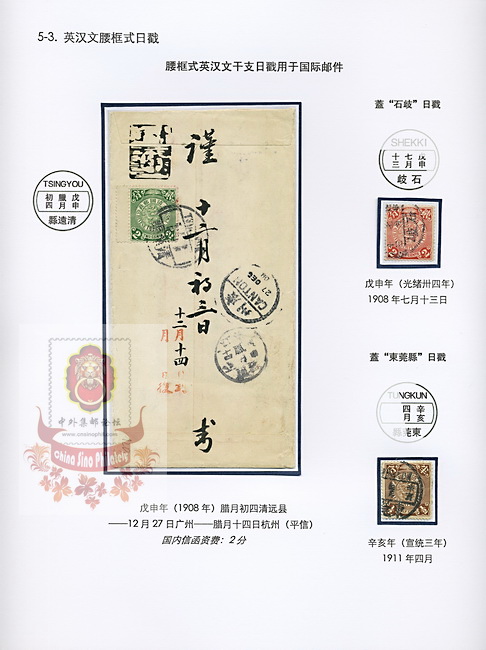 5-3. 英汉文腰框式日戳
腰框式英汉文干支日戳用于国际邮件
蓋“石岐”日戳
SHEKKI
戊申
七月
十三
石岐
TSINGYOU
戊申
臘月
初四
清遠縣
謹
十二月初三日
十二月十四
月
壽
CANTON
27
DEC
廣州
戊申年（光绪卅四年）
1908年七月十三日
蓋“東莞縣”日戳
TUNGKUN
辛亥
四月
東莞縣
中外集邮论坛
www.cnsinophilat
China Sino Philatels
戊申年（1908年）腊月初四清远县
——12月27日广州——腊月十四日杭州（平信）
国内信函资费：2分
辛亥年（宣统三年）
1911年四月